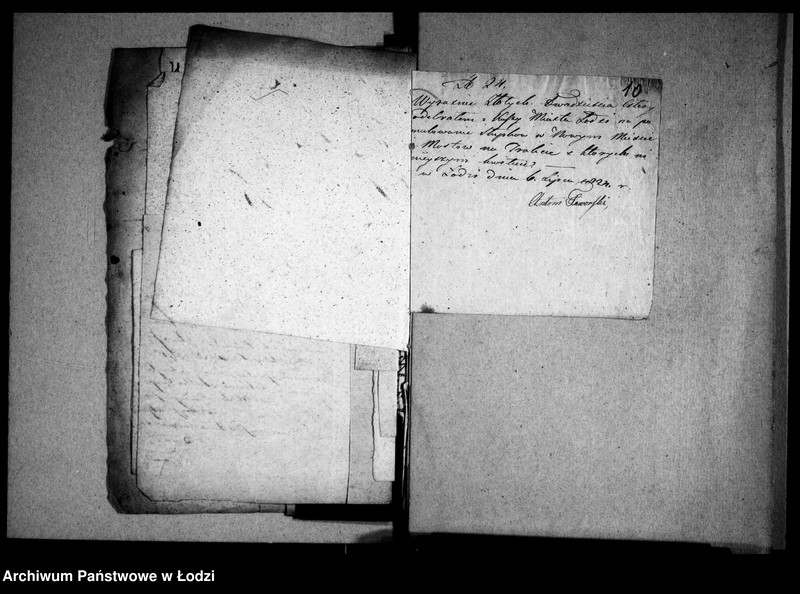 10
24.
Wyraźnie Złotych Dwadzieścia Cztery
odebrałem z Kassy Miasta Łodzi na po
malowanie Słupków w Nowym Mieście
Mostów na Trakcie z których ni
nieyszym kwituię
w Łodzi dnia 6. Lipca 1824. r.
Antoni
Archiwum Państwowe w Łodzi